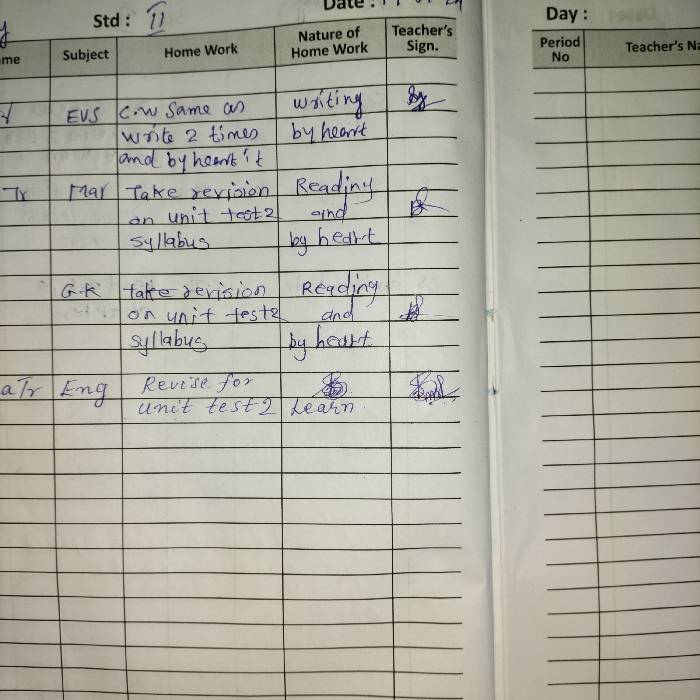 Std : II Date :
Day :
Subject Home Work Nature of Home Work Teacher's Sign.
Period No
EVS C.W same as writing
write 2 times by heart
and by heart it
Tr Mar Take revision Reading
on unit test2 and
syllabus by heart
G.K take revision Reading
on unit test2 and
syllabus by heart
Tr Eng Revise for
unit test 2 Learn